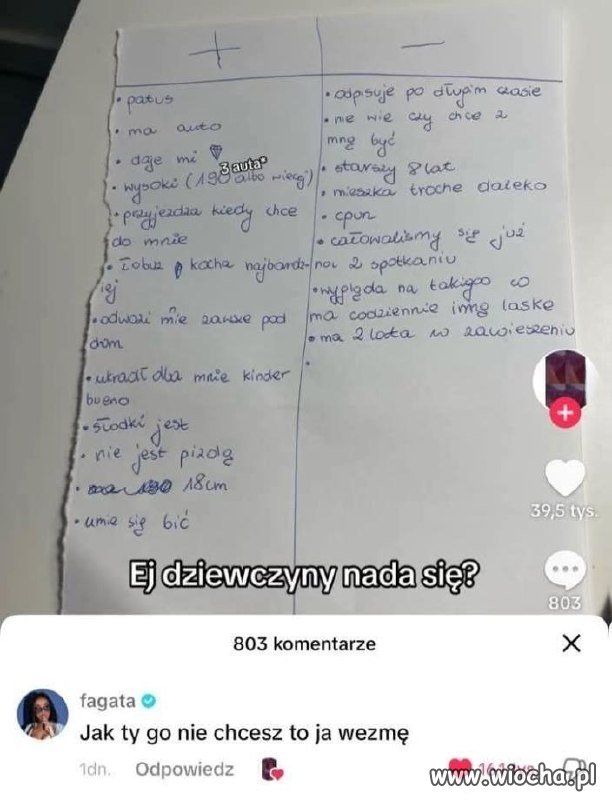 +
• patus
• ma auto
• daje mi
3 auta*
• wysoki (190 albo więcej)
• przyjeżdża kiedy chce
do mnie
• Łobuz kocha najbardz-
iej
• odwozi mnie zawsze pod
dom
• ukradł dla mnie kinder
bueno
• słodki jest
• nie jest pizdą
• 18cm
• umie się bić
—
• odpisuje po długim czasie
• nie wie czy chce z
mną być
• starszy 8 lat
• mieszka troche daleko
• cpun
• całowaliśmy się już
na 2 spotkaniu
• wygląda na takiego co
ma codziennie inną laske
• ma 2 lata w zawieszeniu
•
Ej dziewczyny nada się?
39,5 tys.
803
803 komentarze
fagata
Jak ty go nie chcesz to ja wezmę
1dn. Odpowiedz
www.wiocha.pl